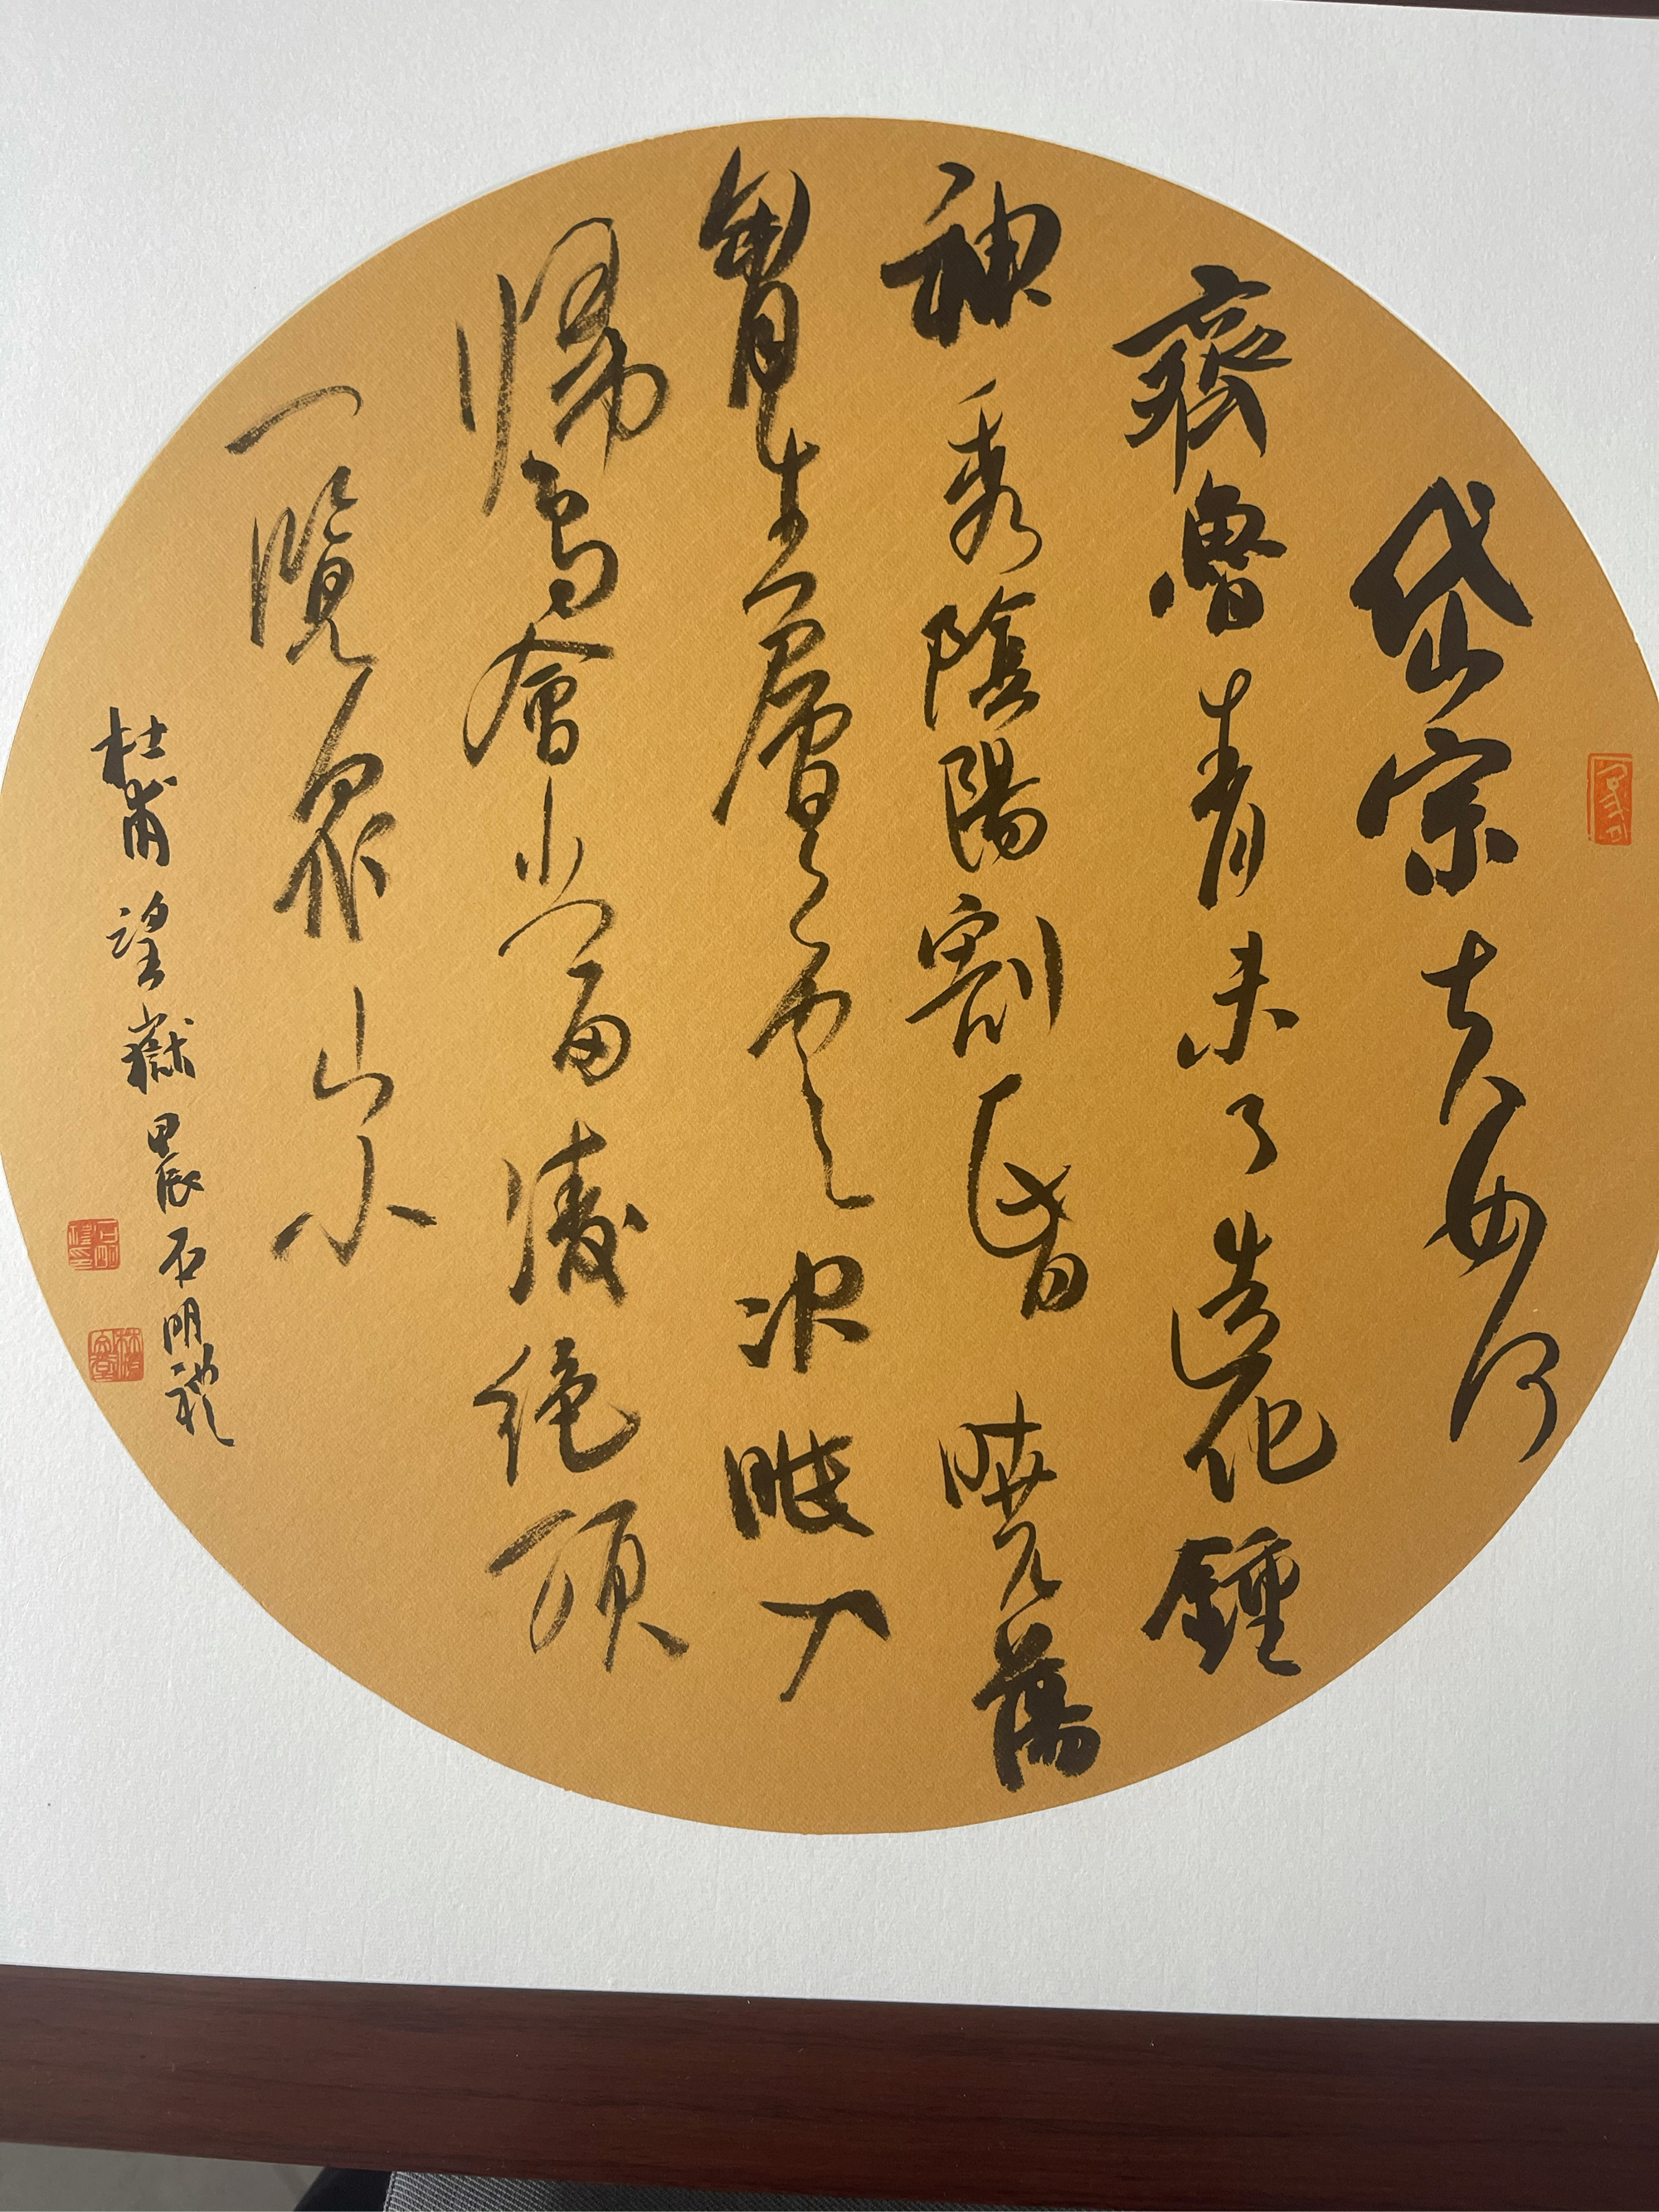 岱宗夫如何
齊魯青未了造化鍾
神秀陰陽割昏曉蕩
胷生層雲决眦入
歸鳥會當凌絕頂
一覽眾山小
杜甫望嶽甲辰石明礼